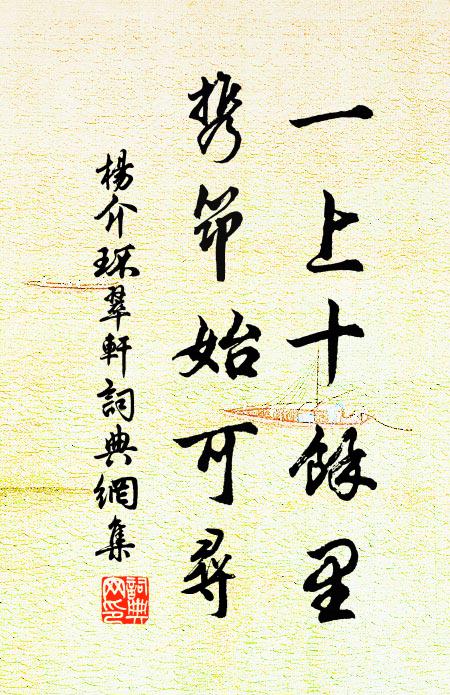 一上十餘里
携筇始可尋
楊介环翠軒詞典網集
詞典网印